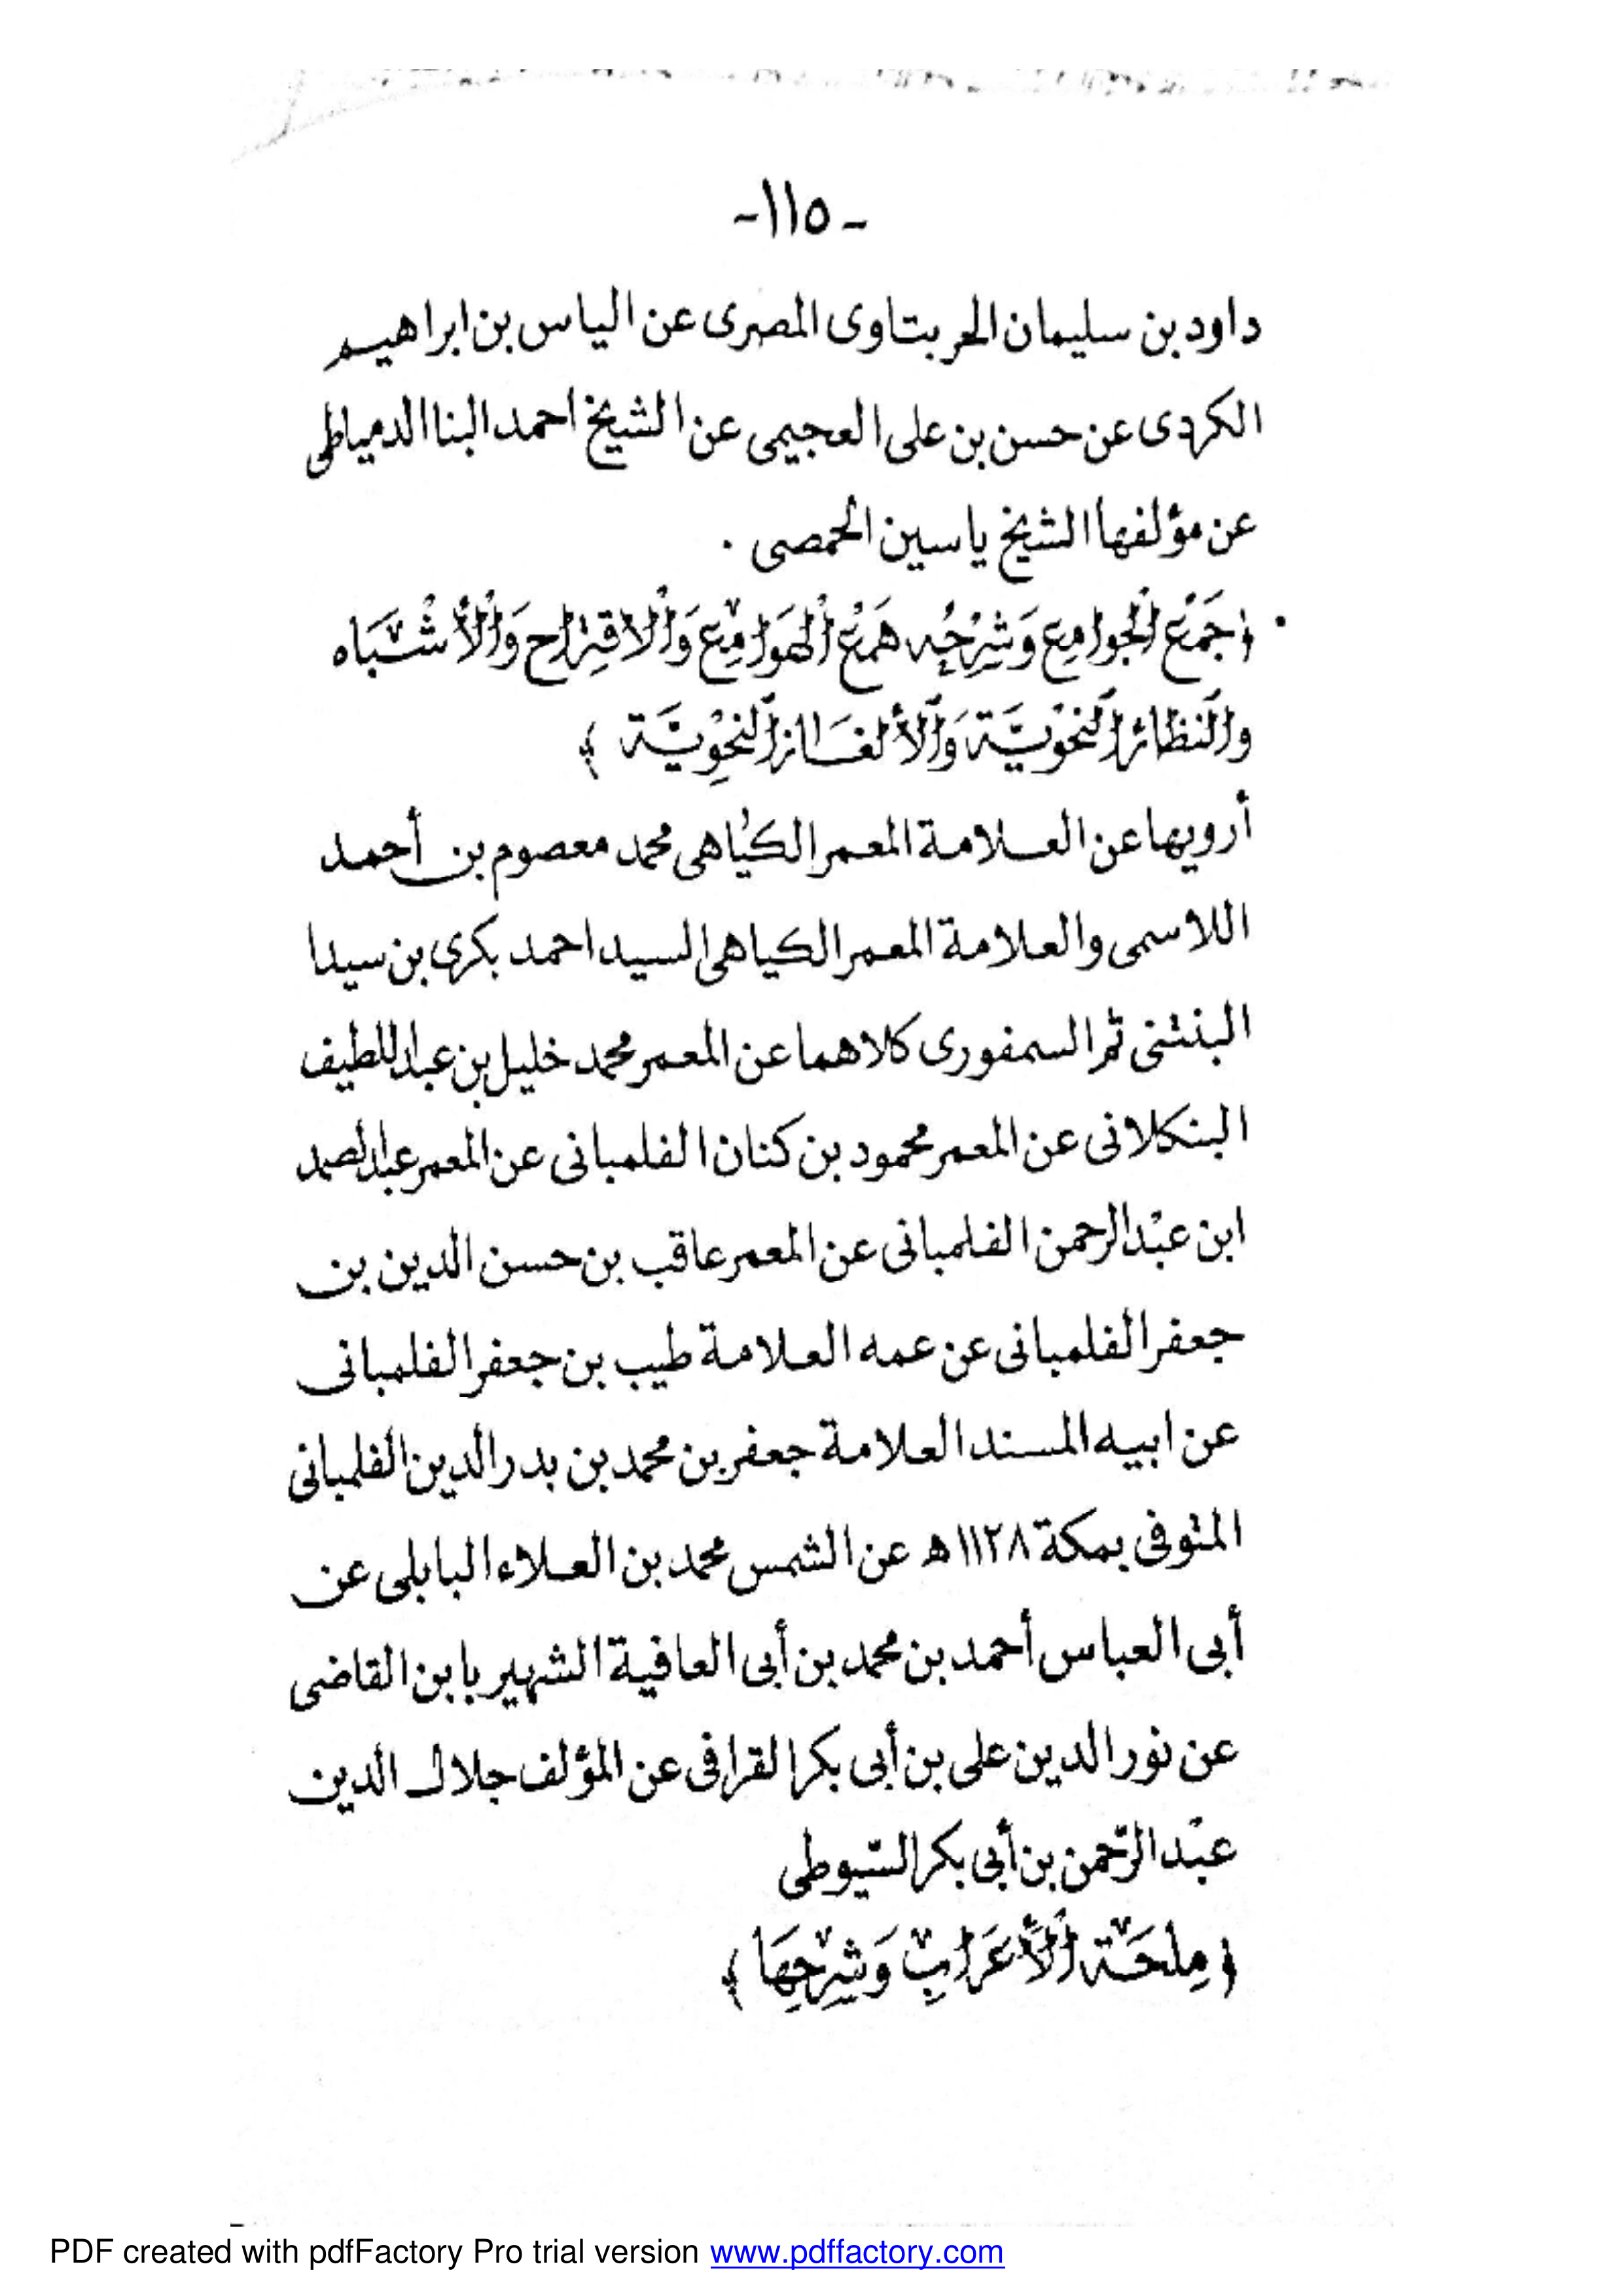 -١١٥-
داود بن سليمان الحربتاوى المصرى عن الياس بن ابراهيم
الكردى عن حسن بن على العجيمى عن الشيخ احمد البنا الدمياطى
عن مؤلفها الشيخ ياسين الحمصى .
﴿ جَمْعُ الْجَوامِع وَشَرْحُه هَمْعُ الْهَوامِع وَالْاقتِراح وَالْأشْبَاه
والنظائر النحْويَّة وَالْألغَاز النحْويَّة ﴾
أرويها عن العلامة المعمر الكياهى محمد معصوم بن أحمد
اللاسمى والعلامة المعمر الكياهى السيد احمد بكرى بن سيدا
البنتنى ثم السمفورى كلاهما عن المعمر محمد خليل بن عبد اللطيف
البنكلانى عن المعمر محمود بن كنان الفلمبانى عن المعمر عبد الصمد
ابن عبْد الرحمن الفلمبانى عن المعمر عاقب بن حسن الدين بن
جعفر الفلمبانى عن عمه العلامة طيب بن جعفر الفلمبانى
عن ابيه المسند العلامة جعفر بن محمد بن بدر الدين الفلمبانى
المتوفى بمكة ١١٢٨ ه عن الشمس محمد بن العلاء البابلى عن
أبى العباس أحمد بن محمد بن أبى العافية الشهير بابن القاضى
عن نور الدين على بن أبى بكر القرافى عن المؤلف جلال الدين
عبْد الرّحمن بن أبى بكر السّيوطى
﴿ مِلحَة الْأَعرَابِ وَشَرْحِهَا ﴾
PDF created with pdfFactory Pro trial version www.pdffactory.com